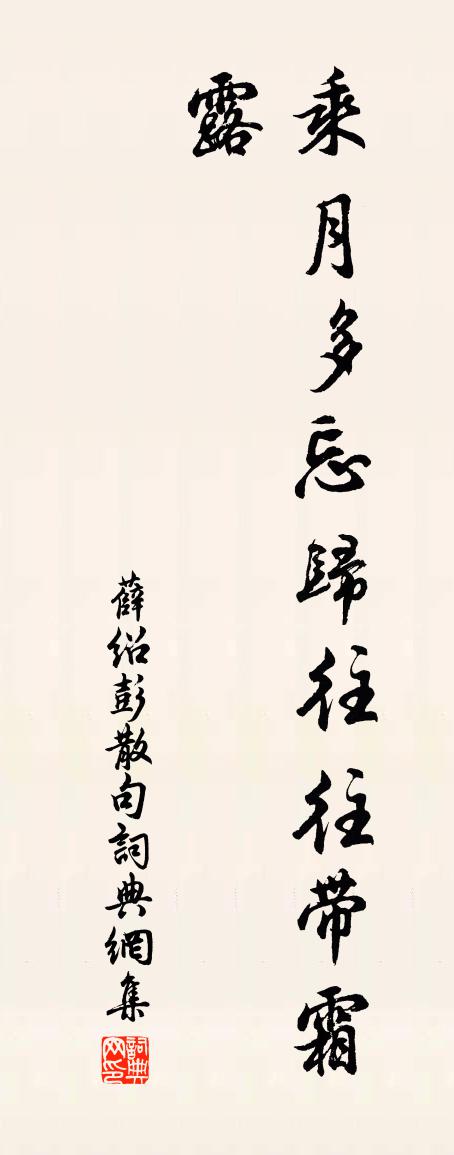 乘月多忘歸往往帶霜
露
薛紹彭散句詞典網集
詞典
网印